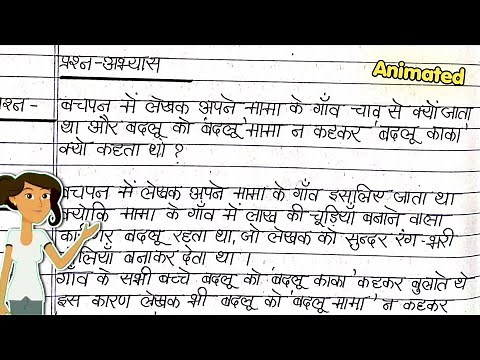 प्रश्न-अभ्यास
Animated
प्रश्न- बचपन में लेखक अपने मामा के गाँव चाव से क्यों जाता
था और बदलू को 'बदलू मामा' न कहकर 'बदलू काका'
क्यों कहता था ?
बचपन में लेखक अपने मामा के गाँव इसलिए जाता था
क्योंकि मामा के गाँव में लाख की चूड़ियाँ बनाने वाला
कारीगर बदलू रहता था, जो लेखक को सुन्दर रंग-भरी
गोलियाँ बनाकर देता था ।
गाँव के सभी बच्चे बदलू को 'बदलू काका' कहकर बुलाते थे
इस कारण लेखक भी बदलू को 'बदलू मामा' न कहकर